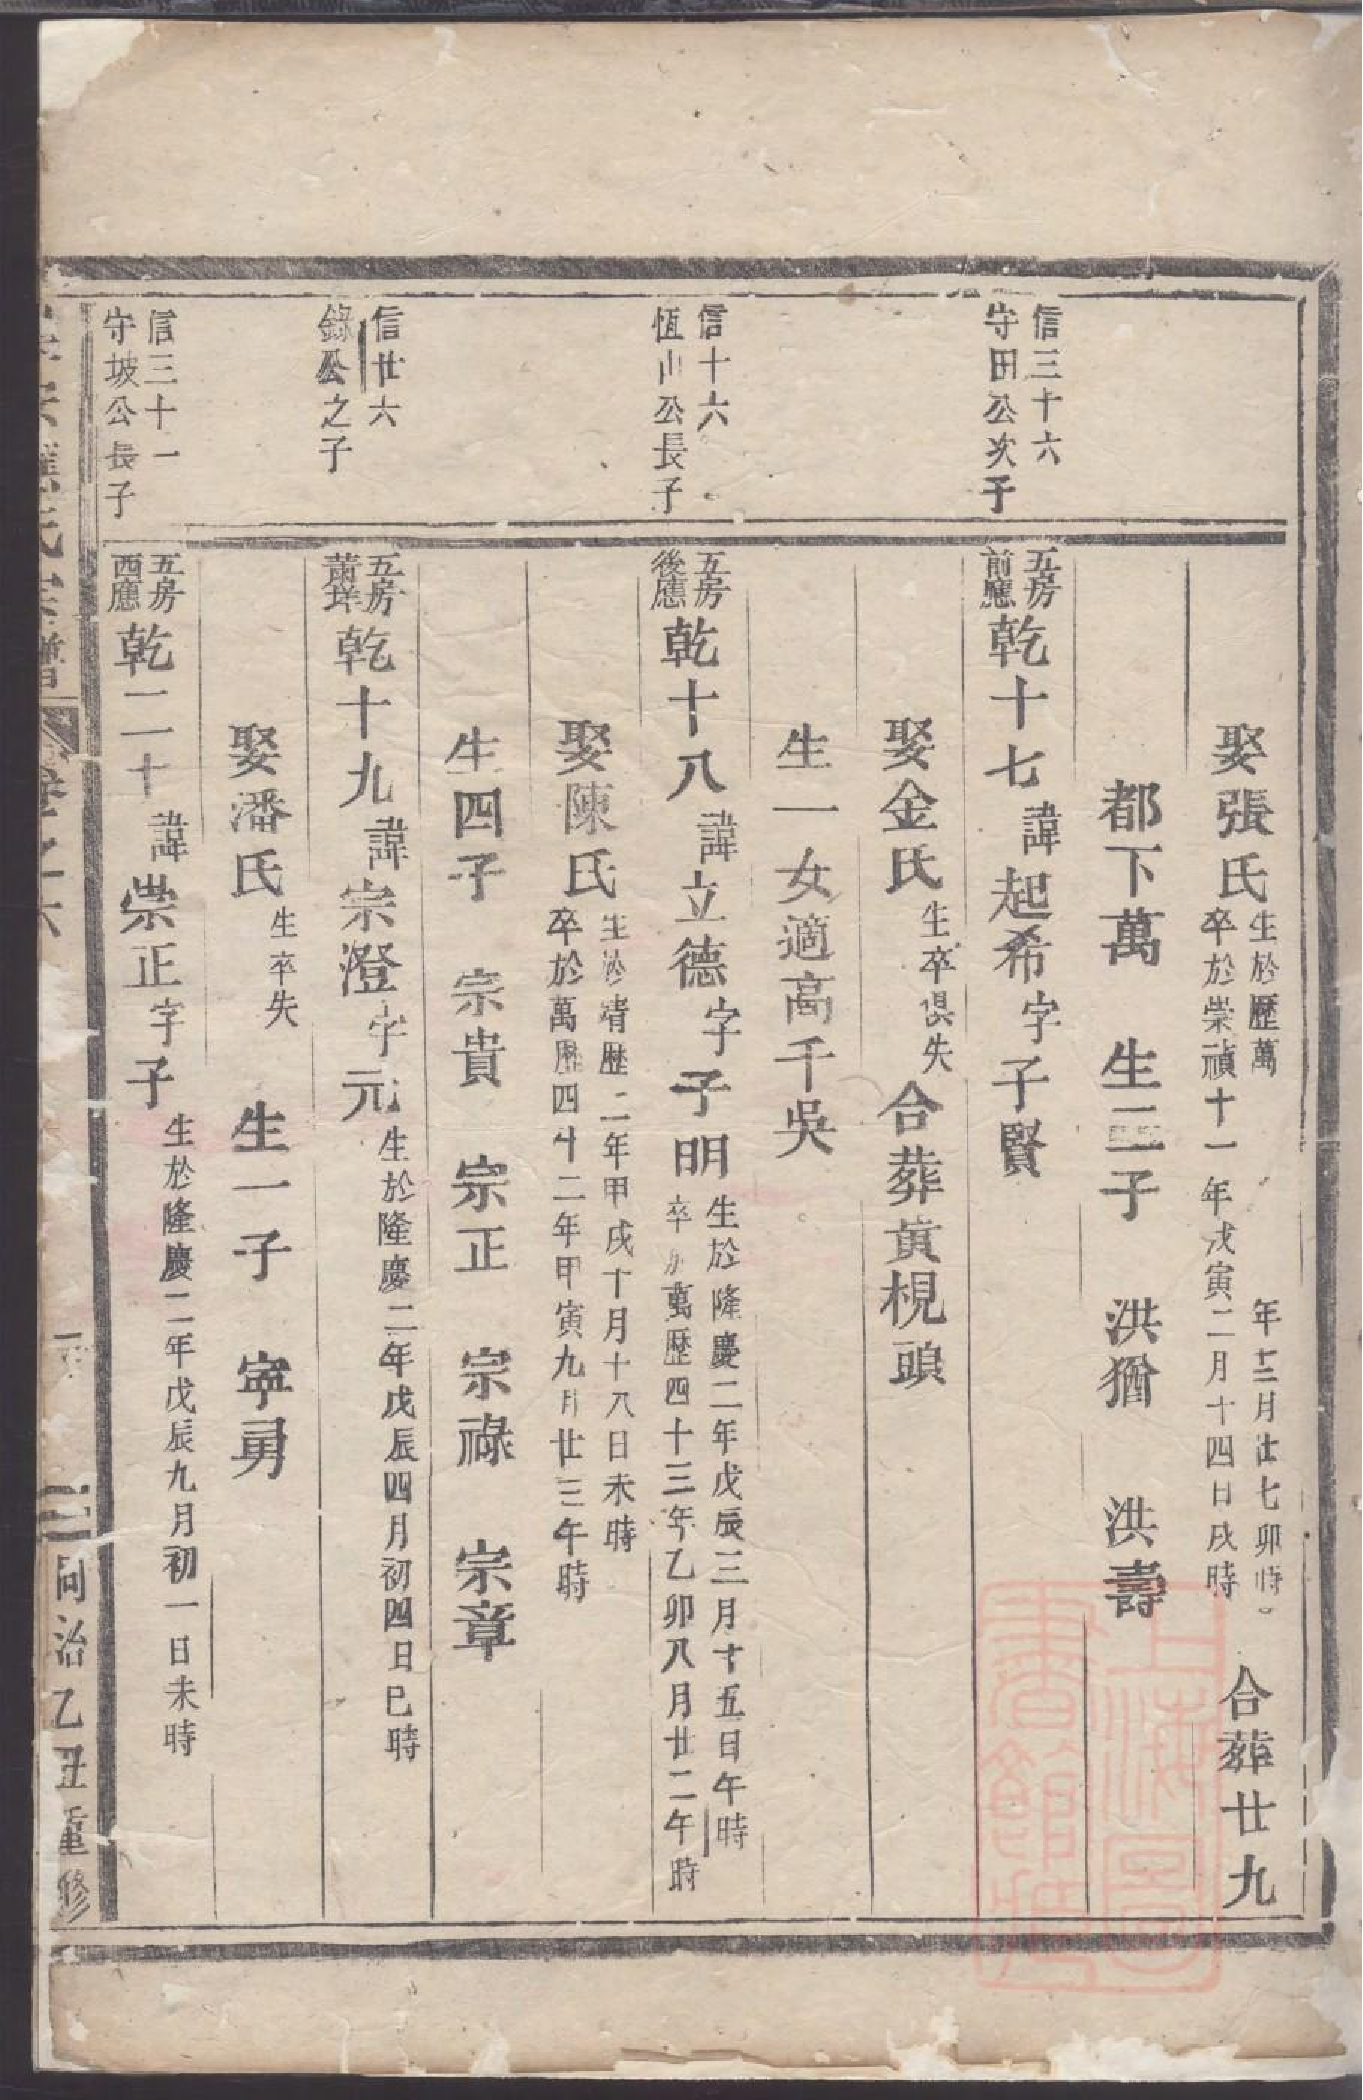 娶張氏
生於歷萬 年十二月廿七卯時
卒於崇禎十一年戊寅二月十四日戌時
合葬廿九
都下萬 生二子 洪猶 洪壽
信三十六
守田公次子
五房
前應
乾十七諱起希字子賢
娶金氏生卒俱失合葬黃梘頭
生一女適高千吳
信十六
恆山公長子
五房
後應
乾十八諱立德字子明
生於隆慶二年戊辰三月十五日午時
卒於萬歷四十三年乙卯八月廿二午時
娶陳氏
生於靖歷二年甲戌十月十八日未時
卒於萬歷四十二年甲寅九月廿三午時
生四子 宗貴 宗正 宗祿 宗章
信廿六
錄公之子
五房
乾十九諱宗澄字元生於隆慶二年戊辰四月初四日巳時
娶潘氏生卒失 生一子 寧勇
信三十一
守坡公長子
五房
西應
乾二十諱崇正字子生於隆慶二年戊辰九月初一日未時
氏宗譜 卷之六 同治乙丑重修
上海圖書館藏